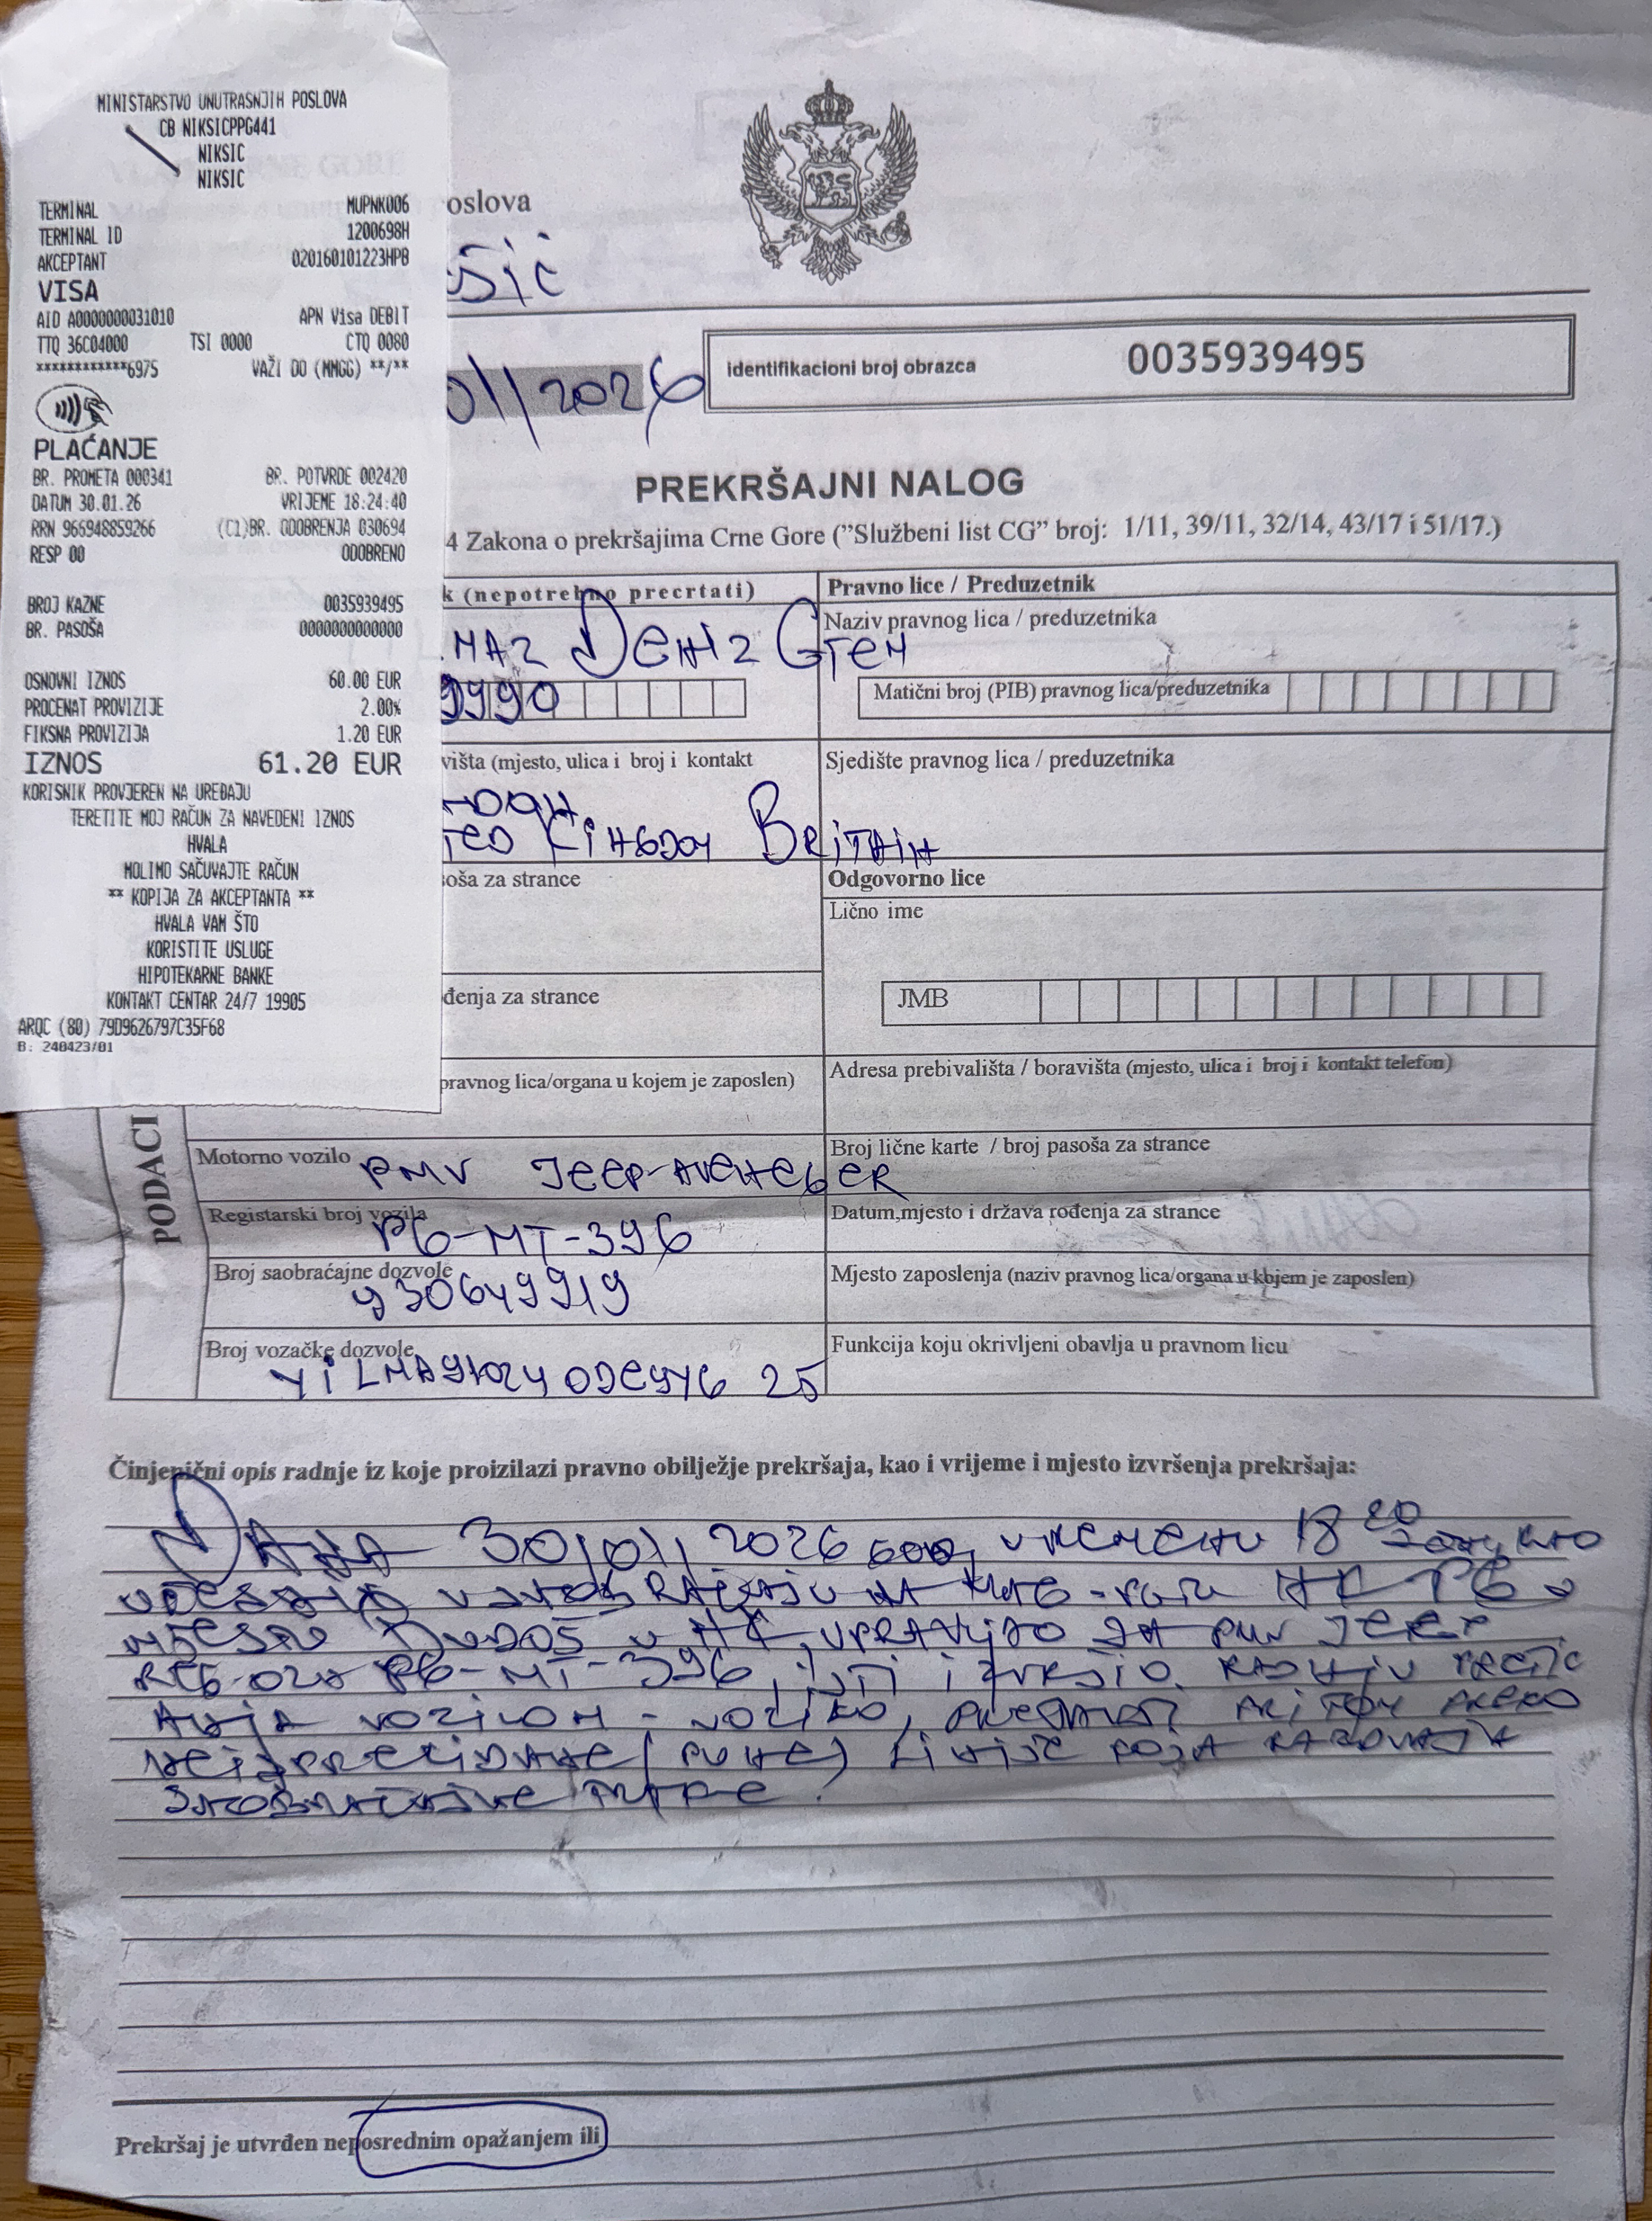 MINISTARSTVO UNUTRASNJIH POSLOVA
CB NIKSICPPG441
NIKSIC
NIKSIC
TERMINAL MUPNK006
TERMINAL ID 1200698H
AKCEPTANT 020160101223HPB
VISA
AID A0000000031010 APN Visa DEBIT
TTQ 36C04000 TSI 0000 CTQ 0080
************6975 VAŽI DO (MMGG) **/**
PLAĆANJE
BR. PROMETA 000341 BR. POTVRDE 002420
DATUM 30.01.26 VRIJEME 18:24:40
RRN 966948859266 (C1)BR. ODOBRENJA 030694
RESP 00 ODOBRENO
BROJ KAZNE 0035939495
BR. PASOŠA 0000000000000
OSNOVNI IZNOS 60.00 EUR
PROCENAT PROVIZIJE 2.00%
FIKSNA PROVIZIJA 1.20 EUR
IZNOS 61.20 EUR
KORISNIK PROVJEREN NA UREĐAJU
TERETITE MOJ RAČUN ZA NAVEDENI IZNOS
HVALA
MOLIMO SAČUVAJTE RAČUN
** KOPIJA ZA AKCEPTANTA **
HVALA VAM ŠTO
KORISTITE USLUGE
HIPOTEKARNE BANKE
KONTAKT CENTAR 24/7 19905
ARQC (80) 79D9626797C35F68
B: 240423/01
oslova
šić
01/2026
identifikacioni broj obrazca 0035939495
PREKRŠAJNI NALOG
4 Zakona o prekršajima Crne Gore ("Službeni list CG" broj: 1/11, 39/11, 32/14, 43/17 i 51/17.)
k (nepotrebno precrtati) Pravno lice / Preduzetnik
Naziv pravnog lica / preduzetnika
MAZ DENIZ
9990 Matični broj (PIB) pravnog lica/preduzetnika
višta (mjesto, ulica i broj i kontakt Sjedište pravnog lica / preduzetnika
TED KINGDOM BRITAIN
oša za strance Odgovorno lice
Lično ime
đenja za strance JMB
pravnog lica/organa u kojem je zaposlen) Adresa prebivališta / boravišta (mjesto, ulica i broj i kontakt telefon)
PODACI
Motorno vozilo PMV JEEP-AVENGER Broj lične karte / broj pasoša za strance
Registarski broj vozila PG-MT-396 Datum,mjesto i država rođenja za strance
Broj saobraćajne dozvole 930649919 Mjesto zaposlenja (naziv pravnog lica/organa u kojem je zaposlen)
Broj vozačke dozvole Funkcija koju okrivljeni obavlja u pravnom licu
Činjenični opis radnje iz koje proizilazi pravno obilježje prekršaja, kao i vrijeme i mjesto izvršenja prekršaja:
DANA 30/01/2026 GOD, U VREMENU 18 20 KAO
UČESNIK U SAOBRAĆAJU NA NK-PG U
MJESTU BUDOŠ U NK, UPRAVLJAO JA PMV JEEP
REG-OZN PG-MT-396, ISTI IZVRŠIO RADNJU PRETIC
ANJA VOZILOM - VOZILO, PRITOM PREKO
NEISPREKIDANE (PUNE) LINIJE KOJA RAZDVAJA
SAOBRAĆAJNE TRAKE.
Prekršaj je utvrđen neposrednim opažanjem ili